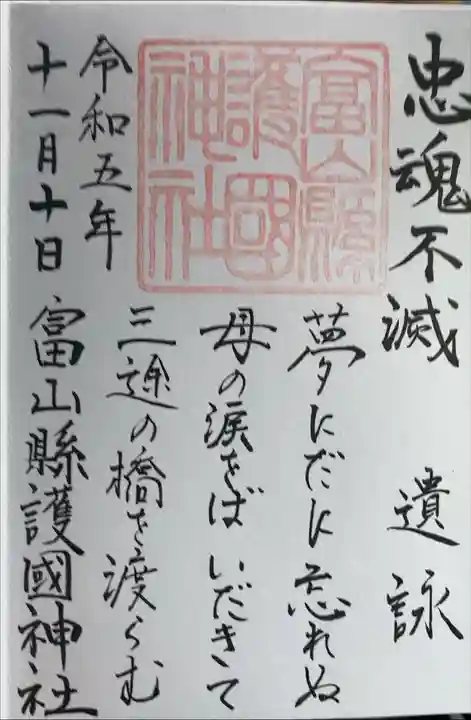 忠魂不滅　遺詠
夢にだに忘れぬ
母の涙をばいだきて
三途の橋を渡らむ
富山縣
護國
神社
令和五年
十一月十日　富山縣護國神社